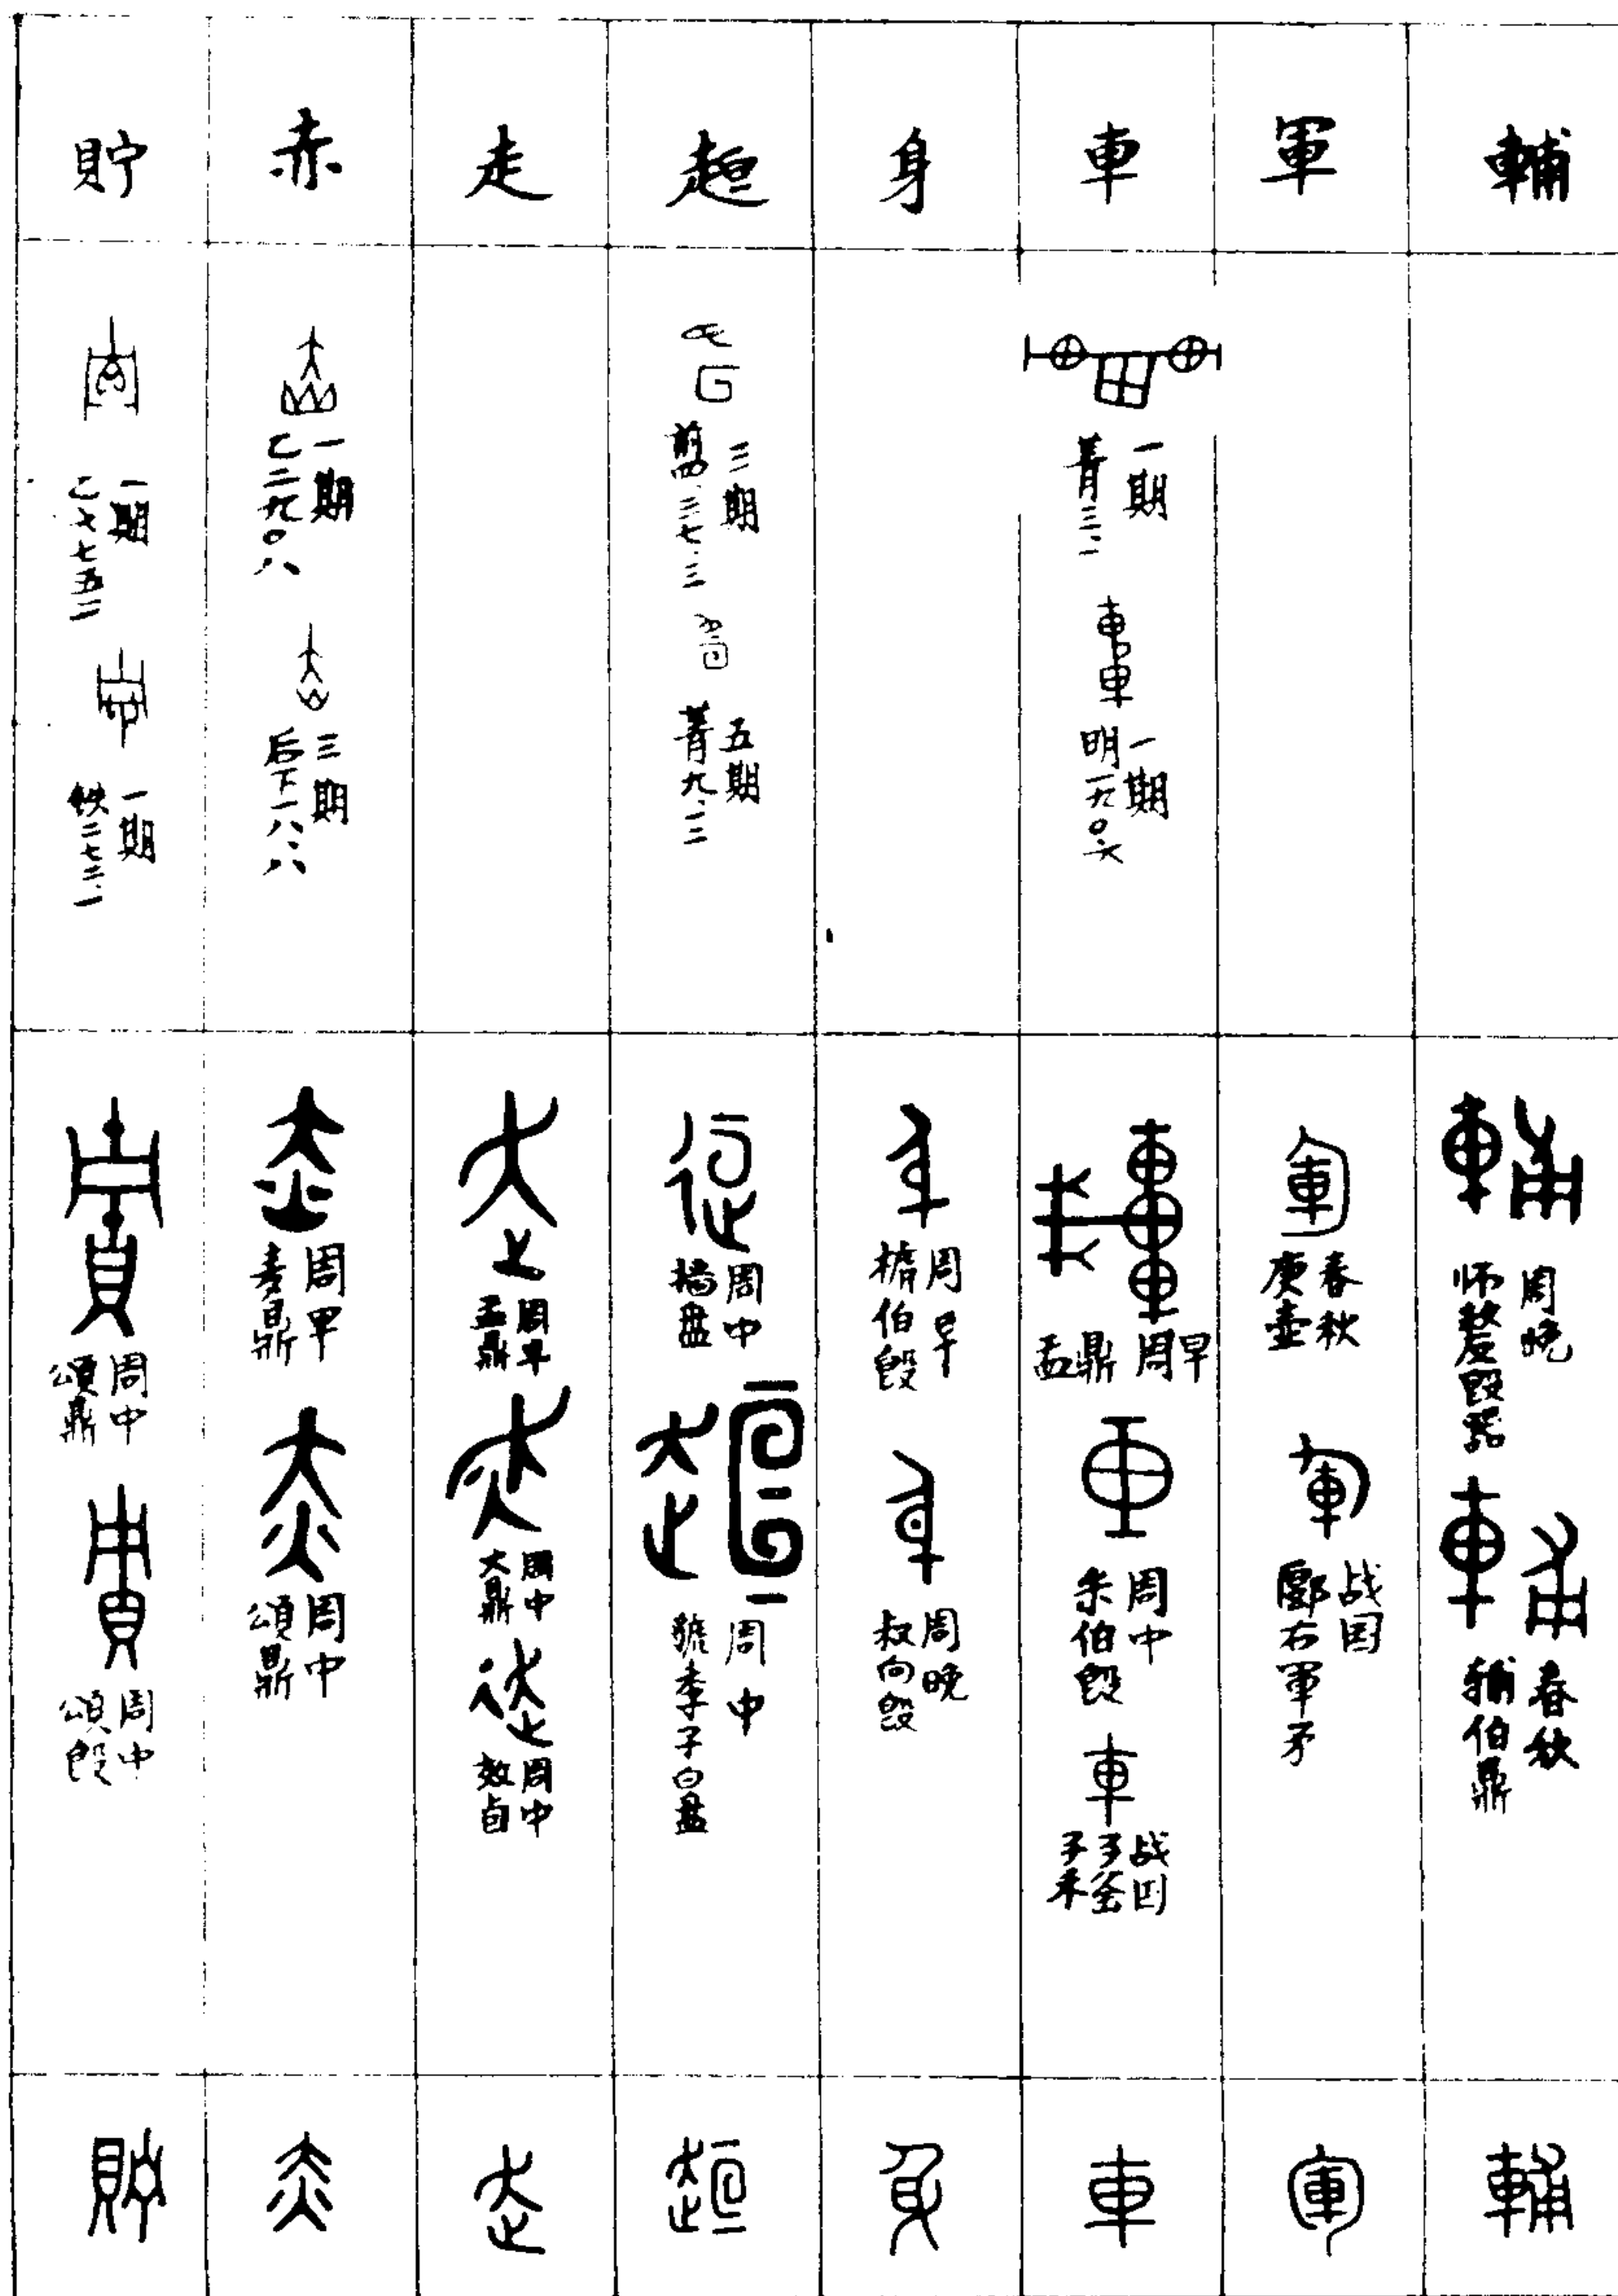 貯 赤 走 趄 身 車 軍 輔
一期
乙七七五二
一期
鉄二七二.一
一期
乙二九〇八
三期
后下一八.八
三期
前四.三七.三
五期
菁九.一三
一期
菁三.一
一期
明一九〇六
周中
頌鼎
周中
頌殷
周早
麦鼎
周中
頌鼎
周早
盂鼎
周中
大鼎
周中
效卣
周中
墙盘
周中
虢季子白盘
周早
楷伯殷
周晚
叔向殷
周早
盂鼎
周中
彔伯殷
战国
子禾子釜
春秋
庚壶
战国
郾右軍矛
周晚
师嫠殷器
春秋
辅伯鼎
貯 赤 走 趄 身 車 軍 輔